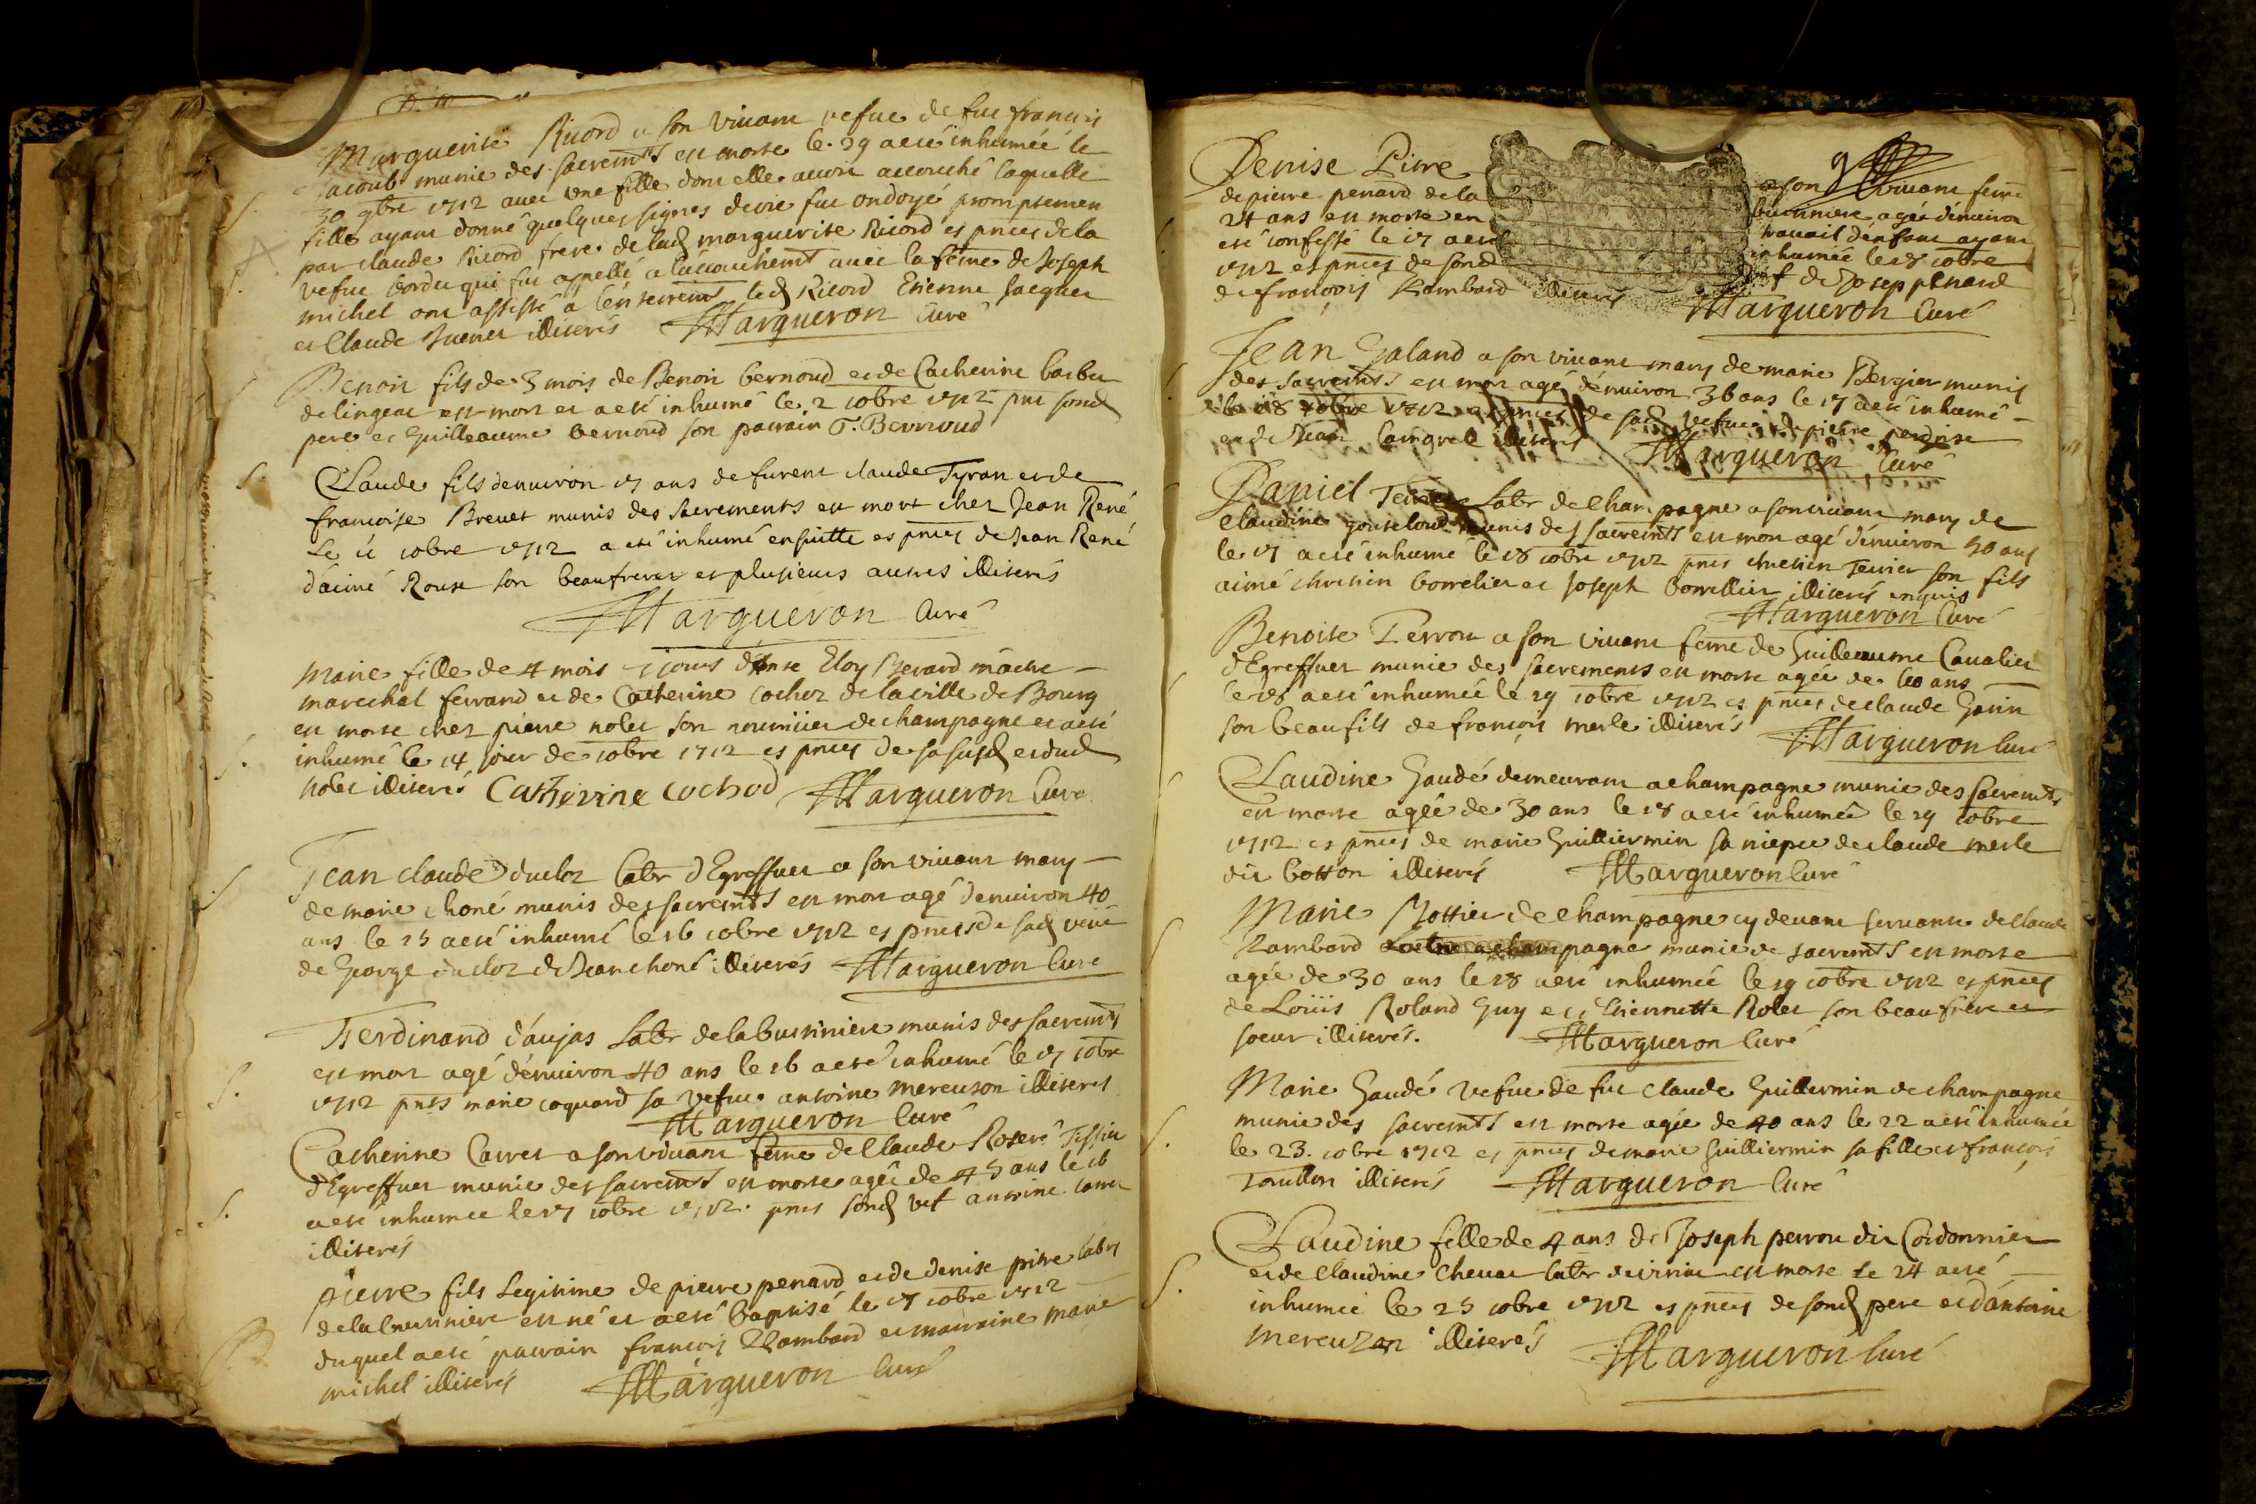 Marguerite Ricord a son vivant vefue de feu francois
Jacoub munie des sacremts est morte le 29 a eté inhumée le
30 9bre 1712 avec une fille dont elle avoit accouché laquelle
fille ayant donné quelques signes de vie fut ondoyé promptement
par claude Ricord frere de lad marguerite Ricord es pnces de la
vefue qui fut appellé a l'accouchemt avec la feme de Joseph
michel ont assisté a l'enterremt led Ricord Etienne Jacquet
et Claude illiterés Margueron Curé
Benoit fils de 3 mois de Benoit bernoud et de Catherine barbet
de lingeat est mort et a eté inhumé le 2 10bre 1712 pnt sond
pere et Guilleaume bernoud son parrain Bernoud
Claude fils d'environ 17 ans de furent claude Tyran et de
francoise Brevet munis des sacrements est mort chez Jean René
Le 11 10bre 1712 a eté inhumé ensuitte es pnces de Jean René
d'aimé Roux son beaufrere et plusieurs autres illiterés
Margueron Curé
Marie fille de 4 mois jours Eloy Berard maitre
marechal ferrand et de Catherine Cochoz de la ville de Bourg
est morte chez pierre nolet son nourricier de champagne et a eté
inhumé le 14 jour de 10bre 1712 es pnces de sa susd et dud
nolet illiterés Catherine cochod Margueron Curé
Jean claude ducloz Labr d'Egreffuet a son vivant mary
de marie choné munis des sacremts est mort agé d'environ 40
ans le 15 a eté inhumé le 16 10bre 1712 es pnces de sad veuve
de George ducloz de Jean choné illiterés Margueron Curé
Ferdinand d'aujas Labr de la buissiniere munis des sacremts
est mort agé d'environ 40 ans le 16 a eté inhumé le 17 10bre
1712 pnts marie coquard sa vefue antoine mercuson illiterés
Margueron Curé
Catherine Carret a son vivant feme de Claude Roseré Tissier
d'Egreffuet munie des sacremts est morte agée de 45 ans le 16
a eté inhumée le 17 10bre 1712 pnts sond vef antoine
illiterés
pierre fils legitime de pierre penard et de denise pitre labrs
de la buissiniere est né et a eté baptisé le 17 10bre 1712
duquel a eté parrain francois Rambard et marraine marie
michel illiterés Margueron Curé
Denise Pitre a son vivant feme
de pierre penard de la buissiniere agée d'environ
24 ans est morte en travail d'enfant ayant
eté confessé le 17 a eté inhumée le 18 10bre
1712 es pnces de sond de Josep penard
de françois Rambard illiterés Margueron Curé
Jean Galand a son vivant mary de marie Bergier munis
des sacremts est mort agé d'environ 36 ans le 17 a eté inhumé
le 18 10bre 1712 es pnces de sad vefue de pierre perdrix
et de Jean illiterés Margueron Curé
Daniel Terrier Labr de Champagne a son vivant mary de
Claudine munis des sacremts est mort agé d'environ 50 ans
le 17 a eté inhumé le 18 10bre 1712 pnts chretien Terrier son fils
aimé chretien borrelier et Joseph borrellier illiterés enquis
Margueron Curé
Benoite Perrou a son vivant feme de Guilleaume Cavalier
d'Egreffuet munie des sacrements est morte agée de 60 ans
le 18 a eté inhumée le 19 10bre 1712 es pnces de claude Gorin
son beaufils de françois merle illiterés Margueron Curé
Claudine Gaudé demeurant a champagne munie des sacremts
est morte agée de 30 ans le 18 a eté inhumée le 19 10bre
1712 es pnces de marie Guilliermin sa niepce de claude merle
dit botton illiterés Margueron Curé
Marie Mottier de Champagne cy devant servante de claude
Rambard champagne munie de sacremts est morte
agée de 30 ans le 18 a eté inhumée le 19 10bre 1712 es pnces
de Loüis Roland Guy et Thiennette Rolet son beau frere et
soeur illiterés. Margueron Curé
Marie Gaudé vefue de feu Claude Guillermin de champagne
munie des sacremts est morte agée de 40 ans le 22 a eté inhumée
le 23. 10bre 1712 es pnces de marie Guilliermin sa fille et francois
illiterés Margueron Curé
Claudine fille de 4 ans de Joseph perrou dit Cordonnier
et de Claudine Chevat labr est morte le 24 a eté
inhumée le 25 10bre 1712 es pnces de sond pere et d'antoine
mercuzon illiterés Margueron Curé